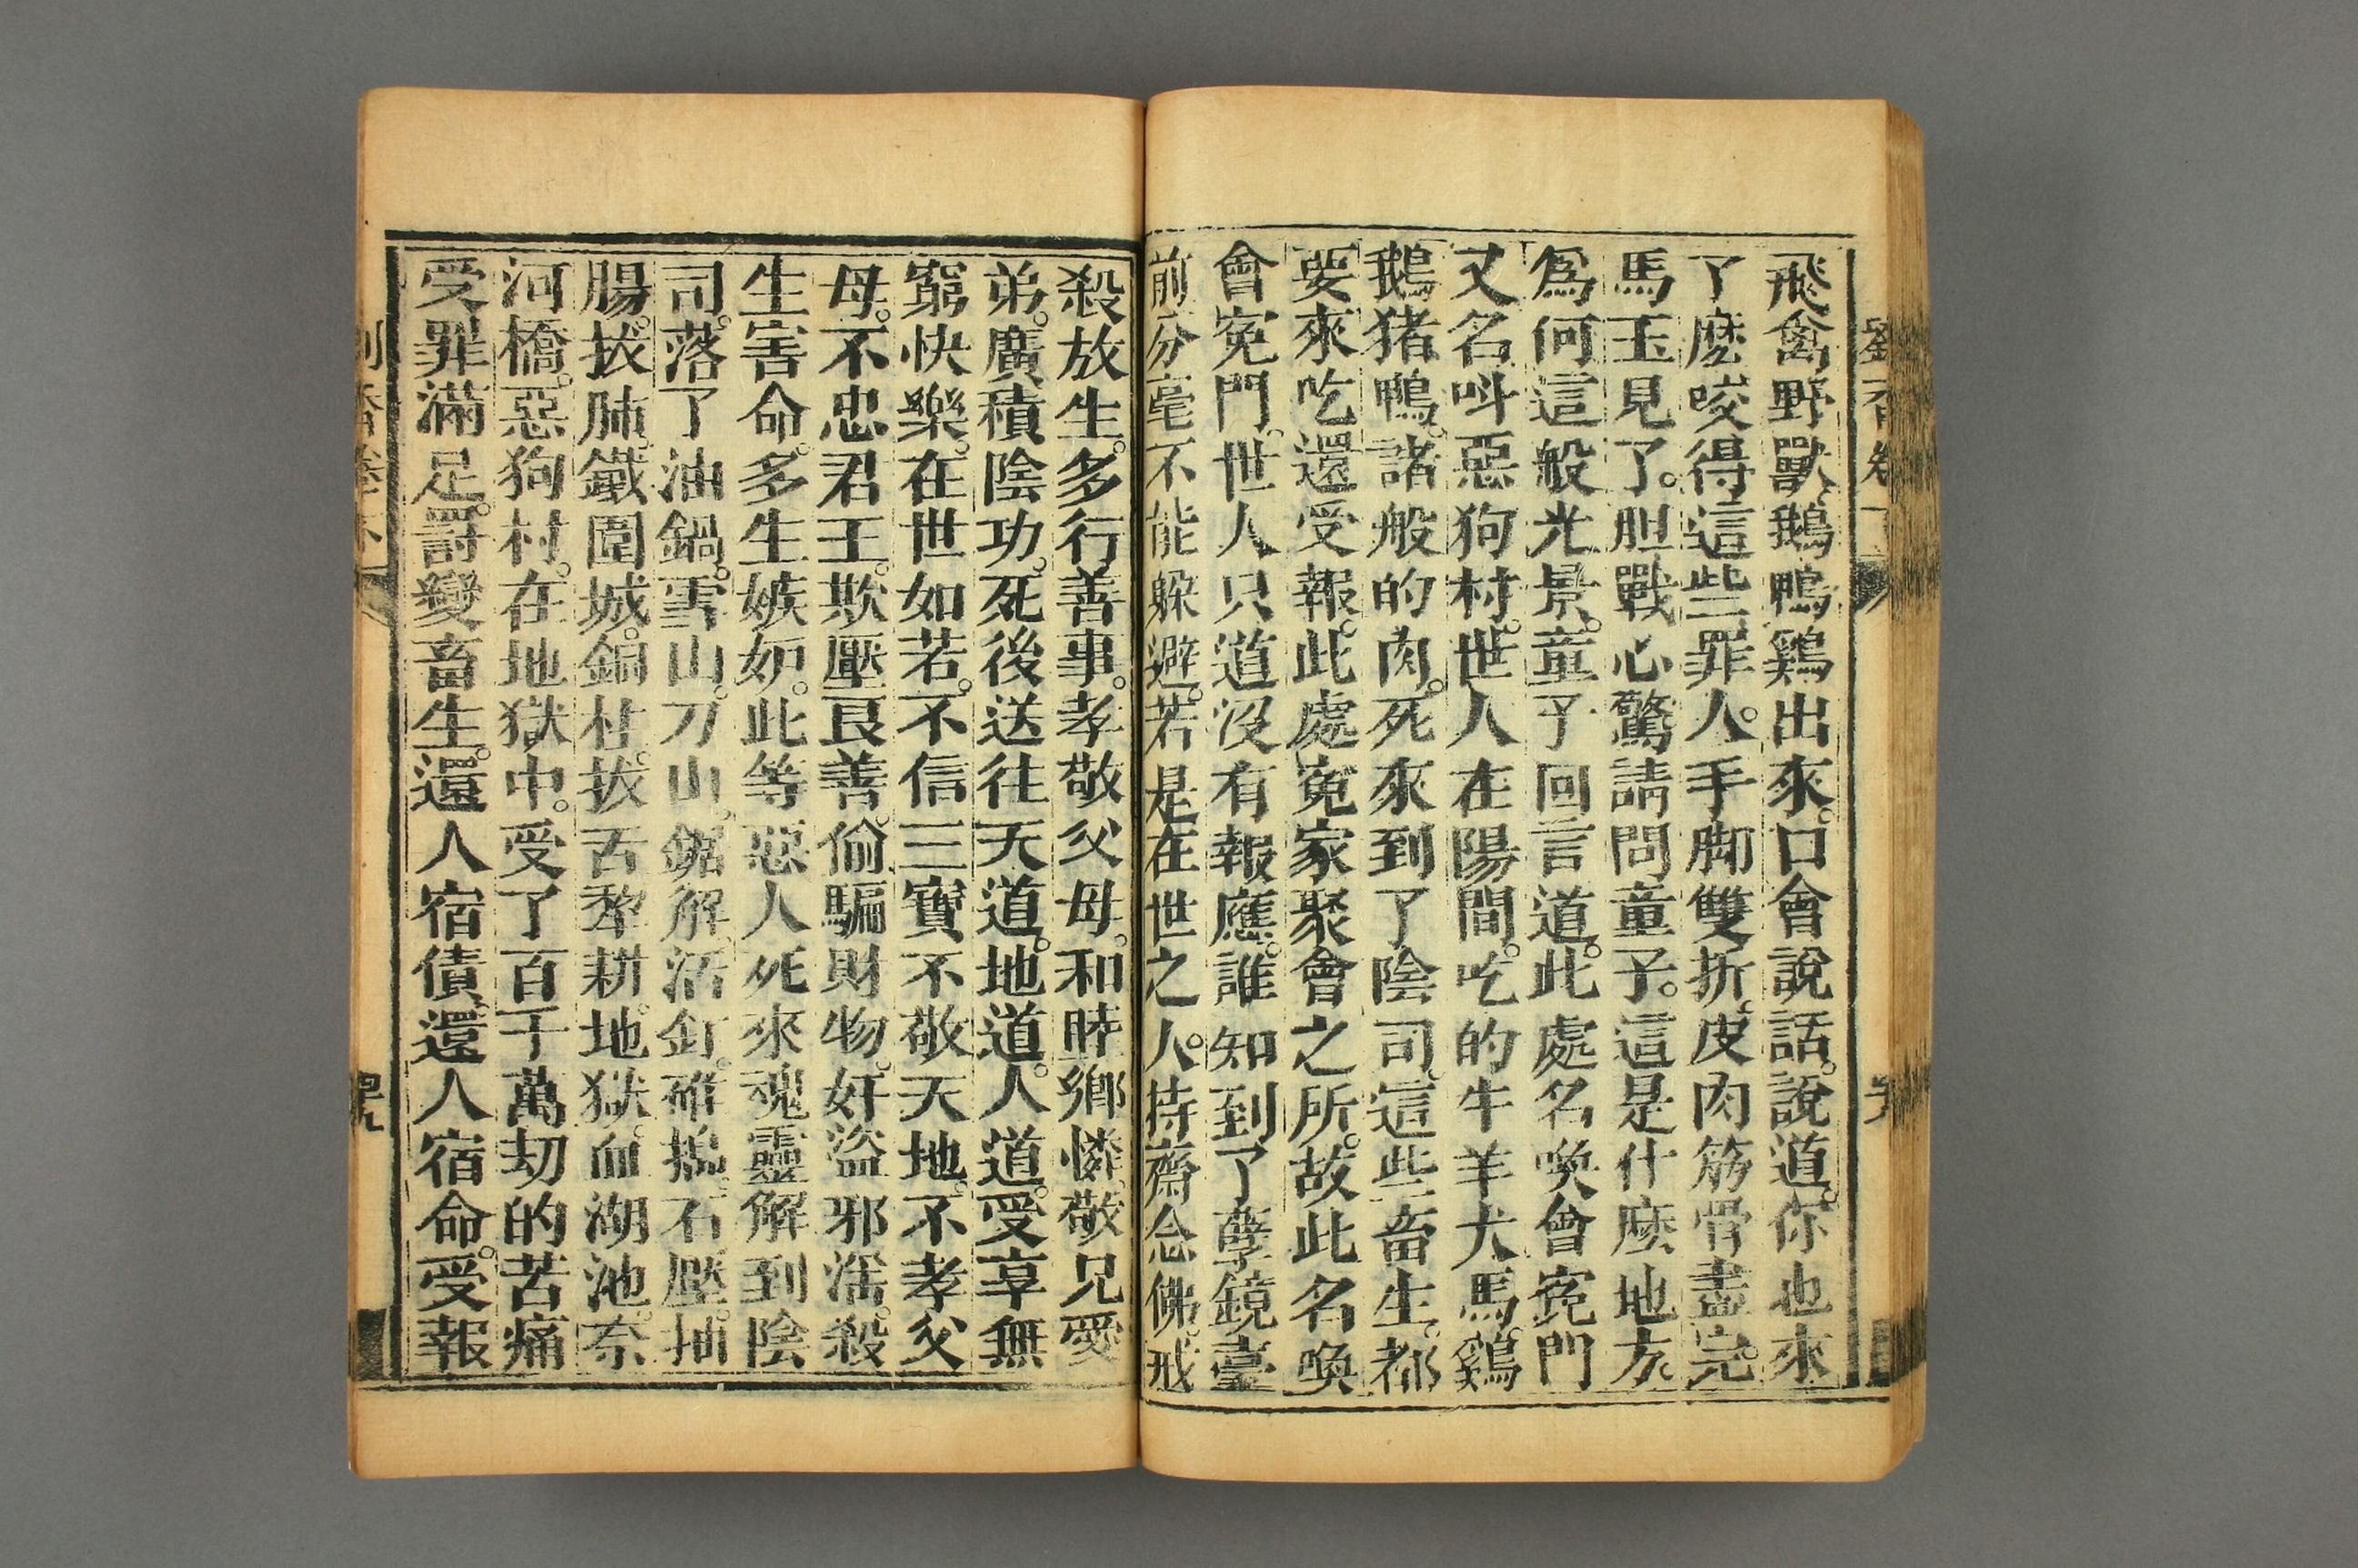 飛禽野獸。鵝鴨鷄出來。口會說話。說道。你也來
了麼咬得這些罪人。手脚雙折。皮肉筋骨盡完。
馬玉見了。胆戰心驚請問童子。這是什麽地方。
爲何這般光景。童子回言道。此處名喚會寃門
又名呌惡狗村。世人在陽間。吃的牛羊犬馬。鷄
鵝猪鴨。諸般的肉。死來到了陰司。這些畜生。都
要來吃還受報。此處寃家聚會之所。故此名喚
會寃門。世人只道沒有報應。誰知到了孽鏡臺
前分毫不能躲避。若是在世之人。持齋念佛。戒
殺放生。多行善事。孝敬父母。和睦鄉憐。敬兄愛
弟。廣積陰功。死後送往天道。地道。人道。受享無
窮快樂。在世如若。不信三寶不敬天地。不孝父
母。不忠君王。欺壓良善。偷騙財物。奸盜邪淫。殺
生害命。多生嫉妒。此等惡人死來魂靈解到陰
司。落了油鍋。雪山。刀山。鋸解活釘。碓搗。石壓。抽
腸。拔肺。鐵圍城。銅柱。拔舌犂耕。地獄。血湖池。奈
河橋。惡狗村。在地獄中。受了百千萬刧的苦痛
受罪滿足。罸變畜生。還人宿債。還人宿命。受報